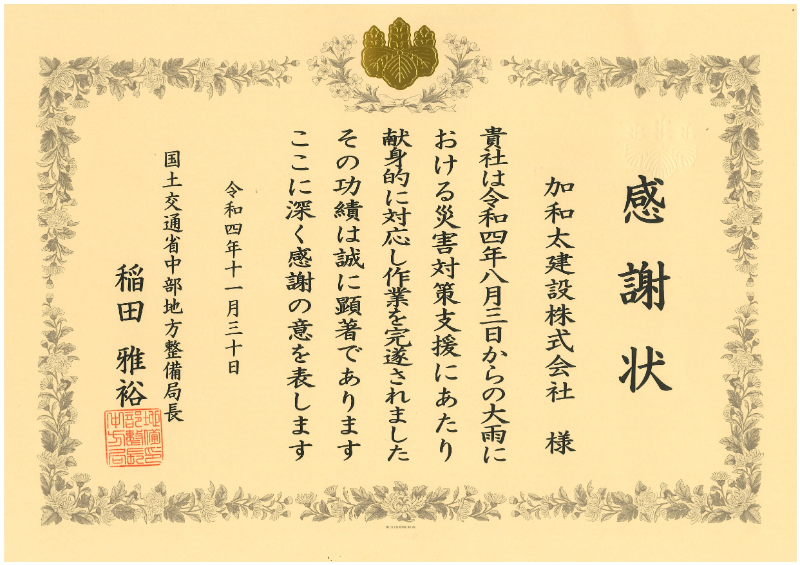 感謝状
加和太建設株式会社 様
貴社は令和四年八月三日からの大雨に
おける災害対策支援にあたり
献身的に対応し作業を完遂されました
その功績は誠に顕著であります
ここに深く感謝の意を表します
令和四年十一月三十日
国土交通省中部地方整備局長
稲田 雅裕